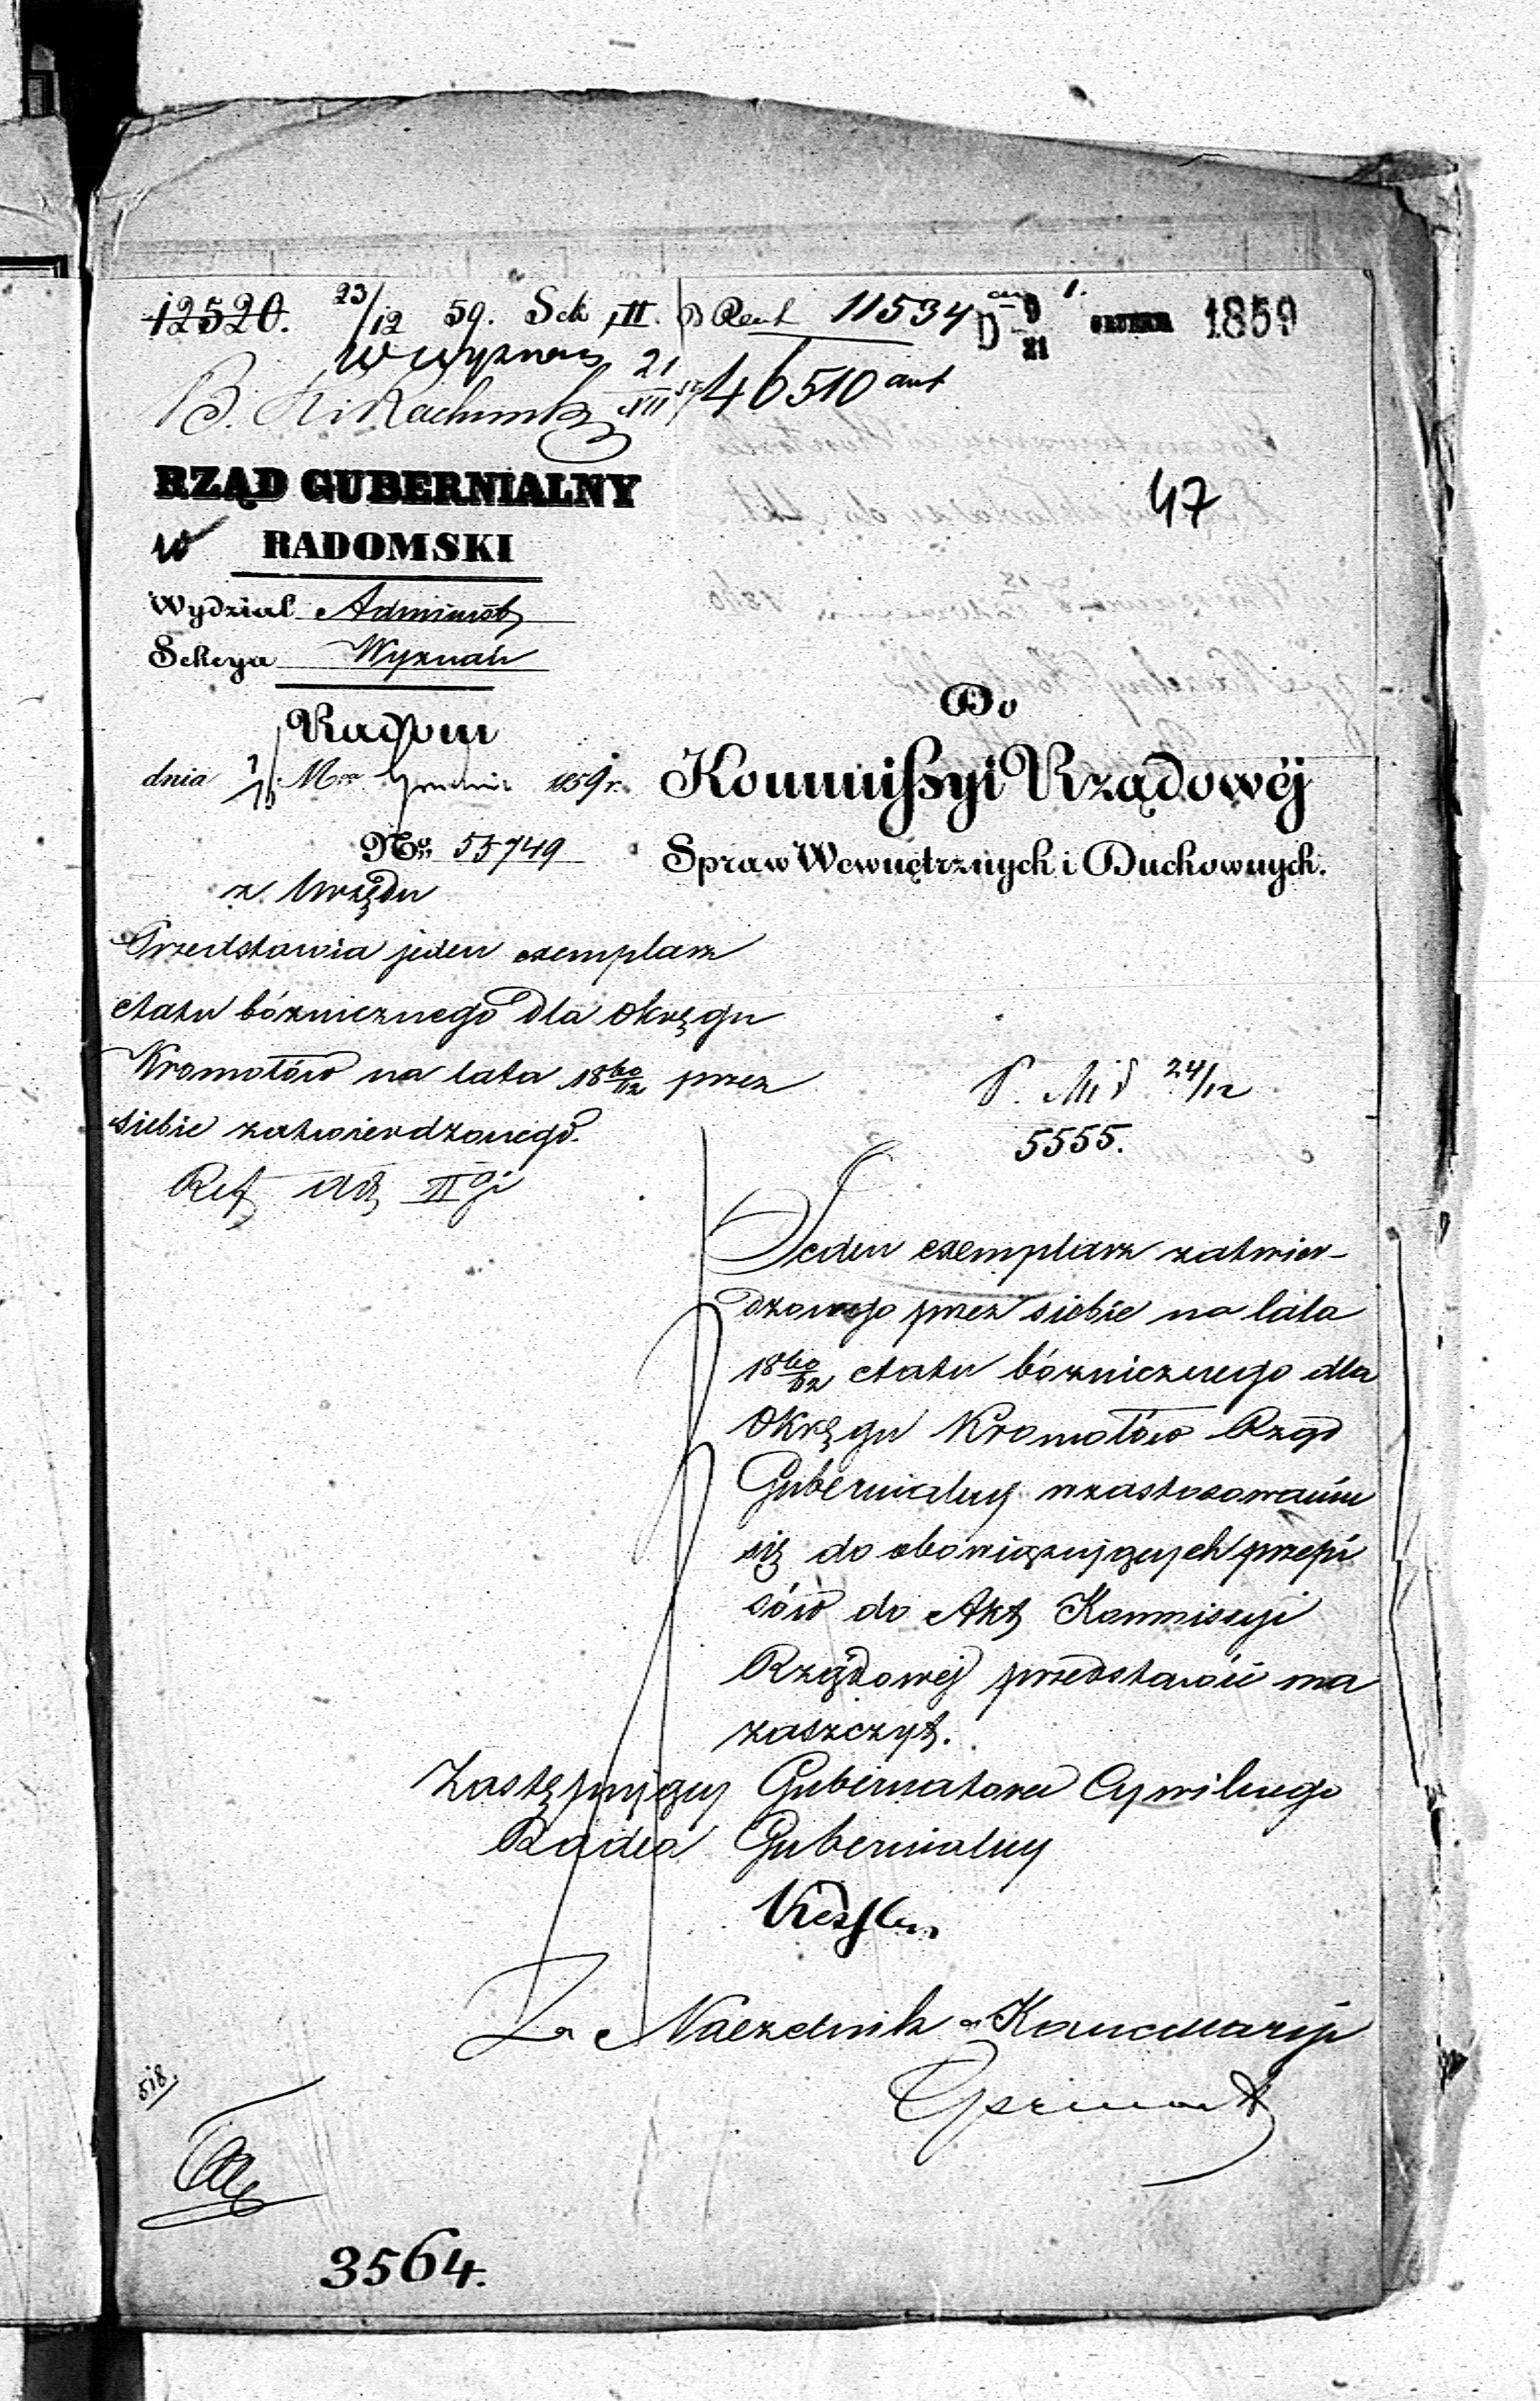 12520. 23/12 59. Sek III. Rent 11534 D 9/21 GRUDNIA 1859
W Wyznań 21/XII 46510 ant
47
RZĄD GUBERNIALNY
RADOMSKI
Wydział Administ
Sekcya Wyznań
Radom
dnia Mca Grudnia 1859 r.
No 55749
z Urzędu
Do
Kommissyi Rządowéj
Spraw Wewnętrznych i Duchownych.
Przedstawia jeden exemplarz
etatu bóżnicznego dla Okręgu
Kromołów na lata 1860/62 przez
siebie zatwierdzonego.
24/12
5555.
Jeden exemplarz zatwier-
dzonego przez siebie na lata
1860/62 etatu bóżnicznego dla
Okręgu Kromołów Rząd
Gubernialny wzastosowaniu
się do obowiązujących przepi
sów do Akt Kommissyi
Rządowej przedstawić ma
zaszczyt.
Zastępujący Gubernatora Cywilnego
Radca Gubernialny
Za Naczelnika Kancellaryi
518
3564.